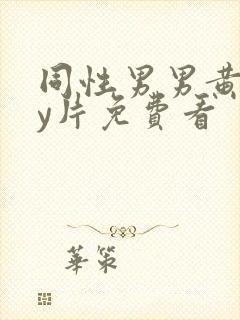 同性男男黄
y片免費看
華策